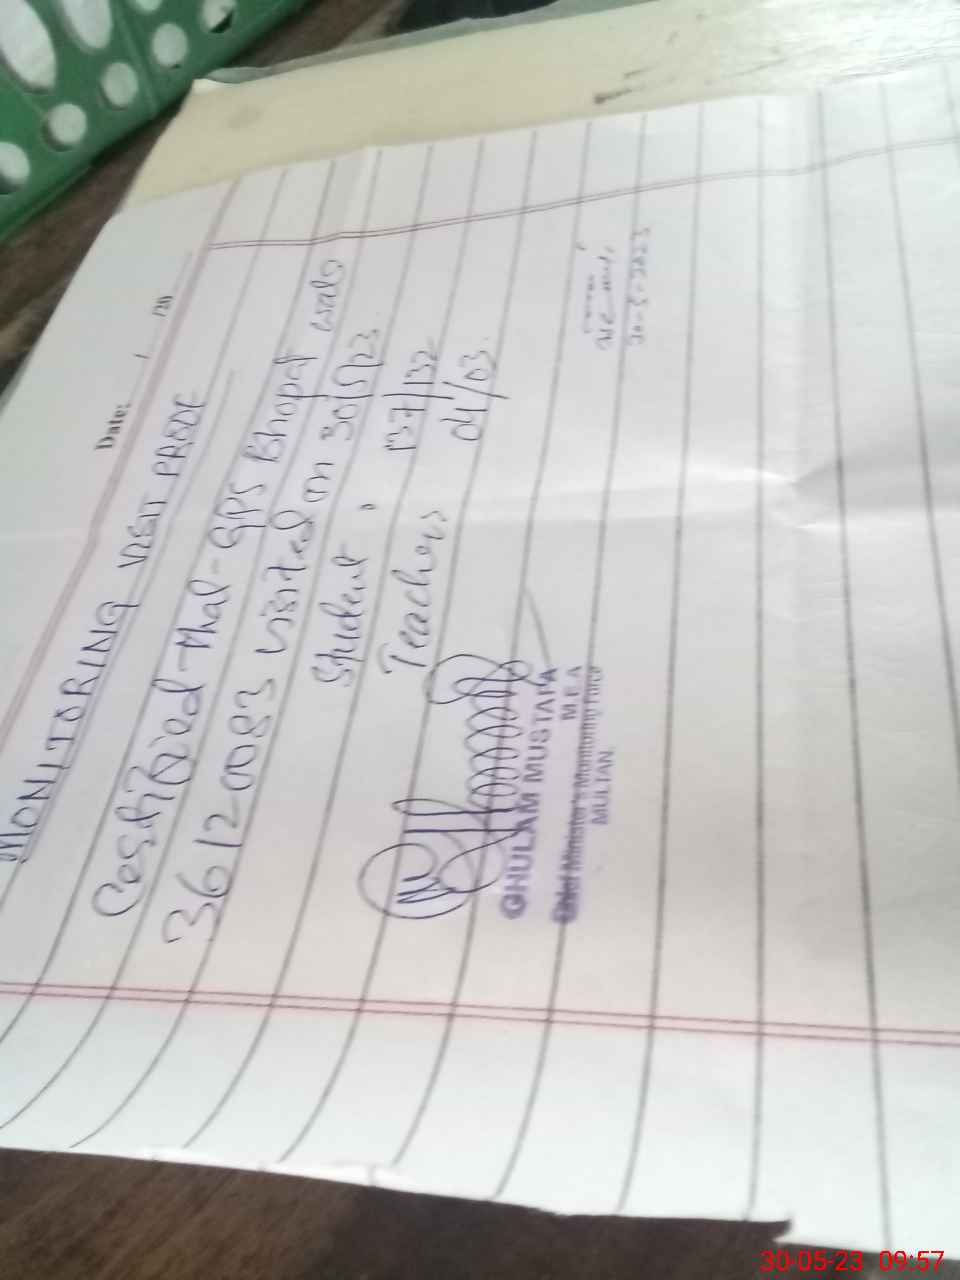 Date: / /20
MONITORING VISIT PROOF
Certified that GPS Bhopat wala
36120083 visited on 30/5/23
Student, 137/132
Teachers 04/03
GHULAM MUSTAFA
M.E.A
Chief Minister's Monitoring Force
MULTAN.
30-5-2023
30-05-23 09:57